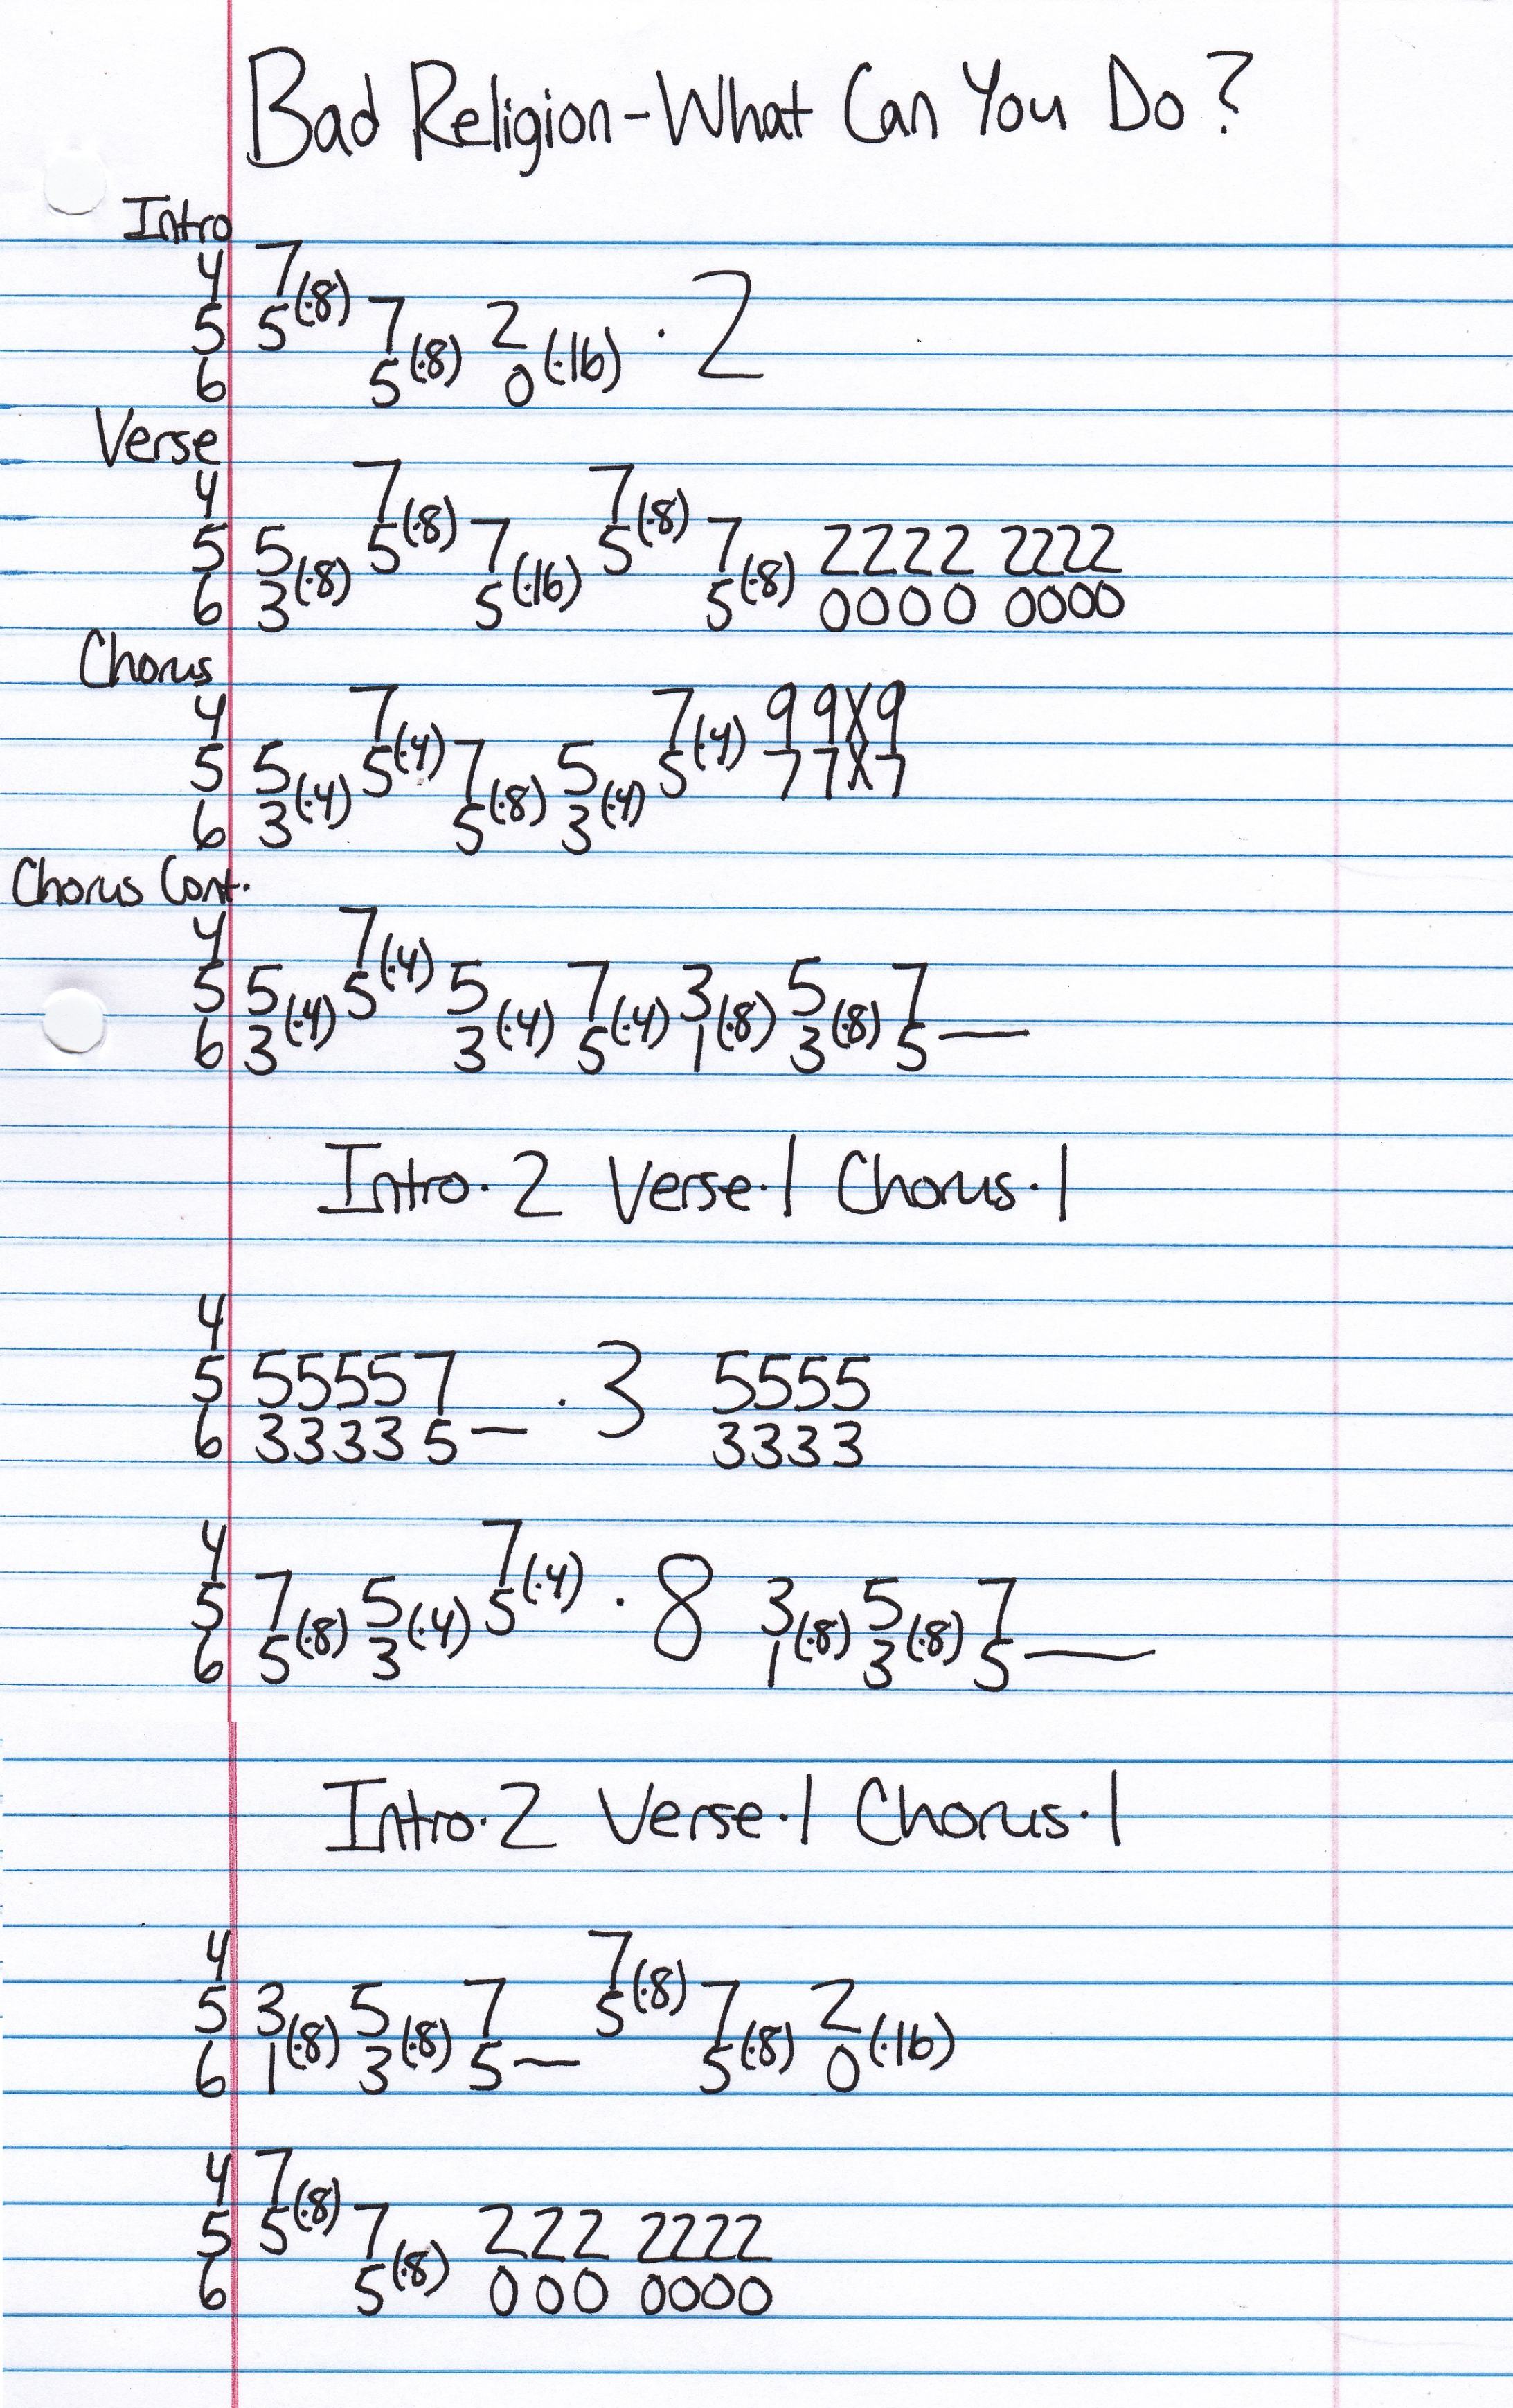 Bad Religion-What Can You Do?
Intro
4 7
5 5(·8) 7 2 · 2
6 5(·8) 0(·16)
Verse
4 7 7
5 5 5(·8) 7 5(·8) 7 2222 2222
6 3(·8) 5(·16) 5(·8) 0000 0000
Chorus
4 7 7 9 9X9
5 5 5(·4) 7 5 5(·4) 7 7X7
6 3(·4) 5(·8) 3(·4)
Chorus Cont.
4 7
5 5 5(·4) 5 7 3 5 7
6 3(·4) 3(·4) 5(·4) 1(·8) 3(·8) 5—
Intro·2 Verse·1 Chorus·1
4
5 55557 · 3 5555
6 33335— 3333
4 7
5 7 5 5(·4) · 8 3 5 7
6 5(·8) 3(·4) 1(·8) 3(·8) 5—
Intro·2 Verse·1 Chorus·1
4 7
5 3 5 7 5(·8) 7 2
6 1(·8) 3(·8) 5— 5(·8) 0(·16)
4 7
5 5(·8) 7 222 2222
6 5(·8) 000 0000